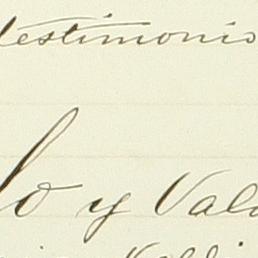 testimonio
lo y Vald